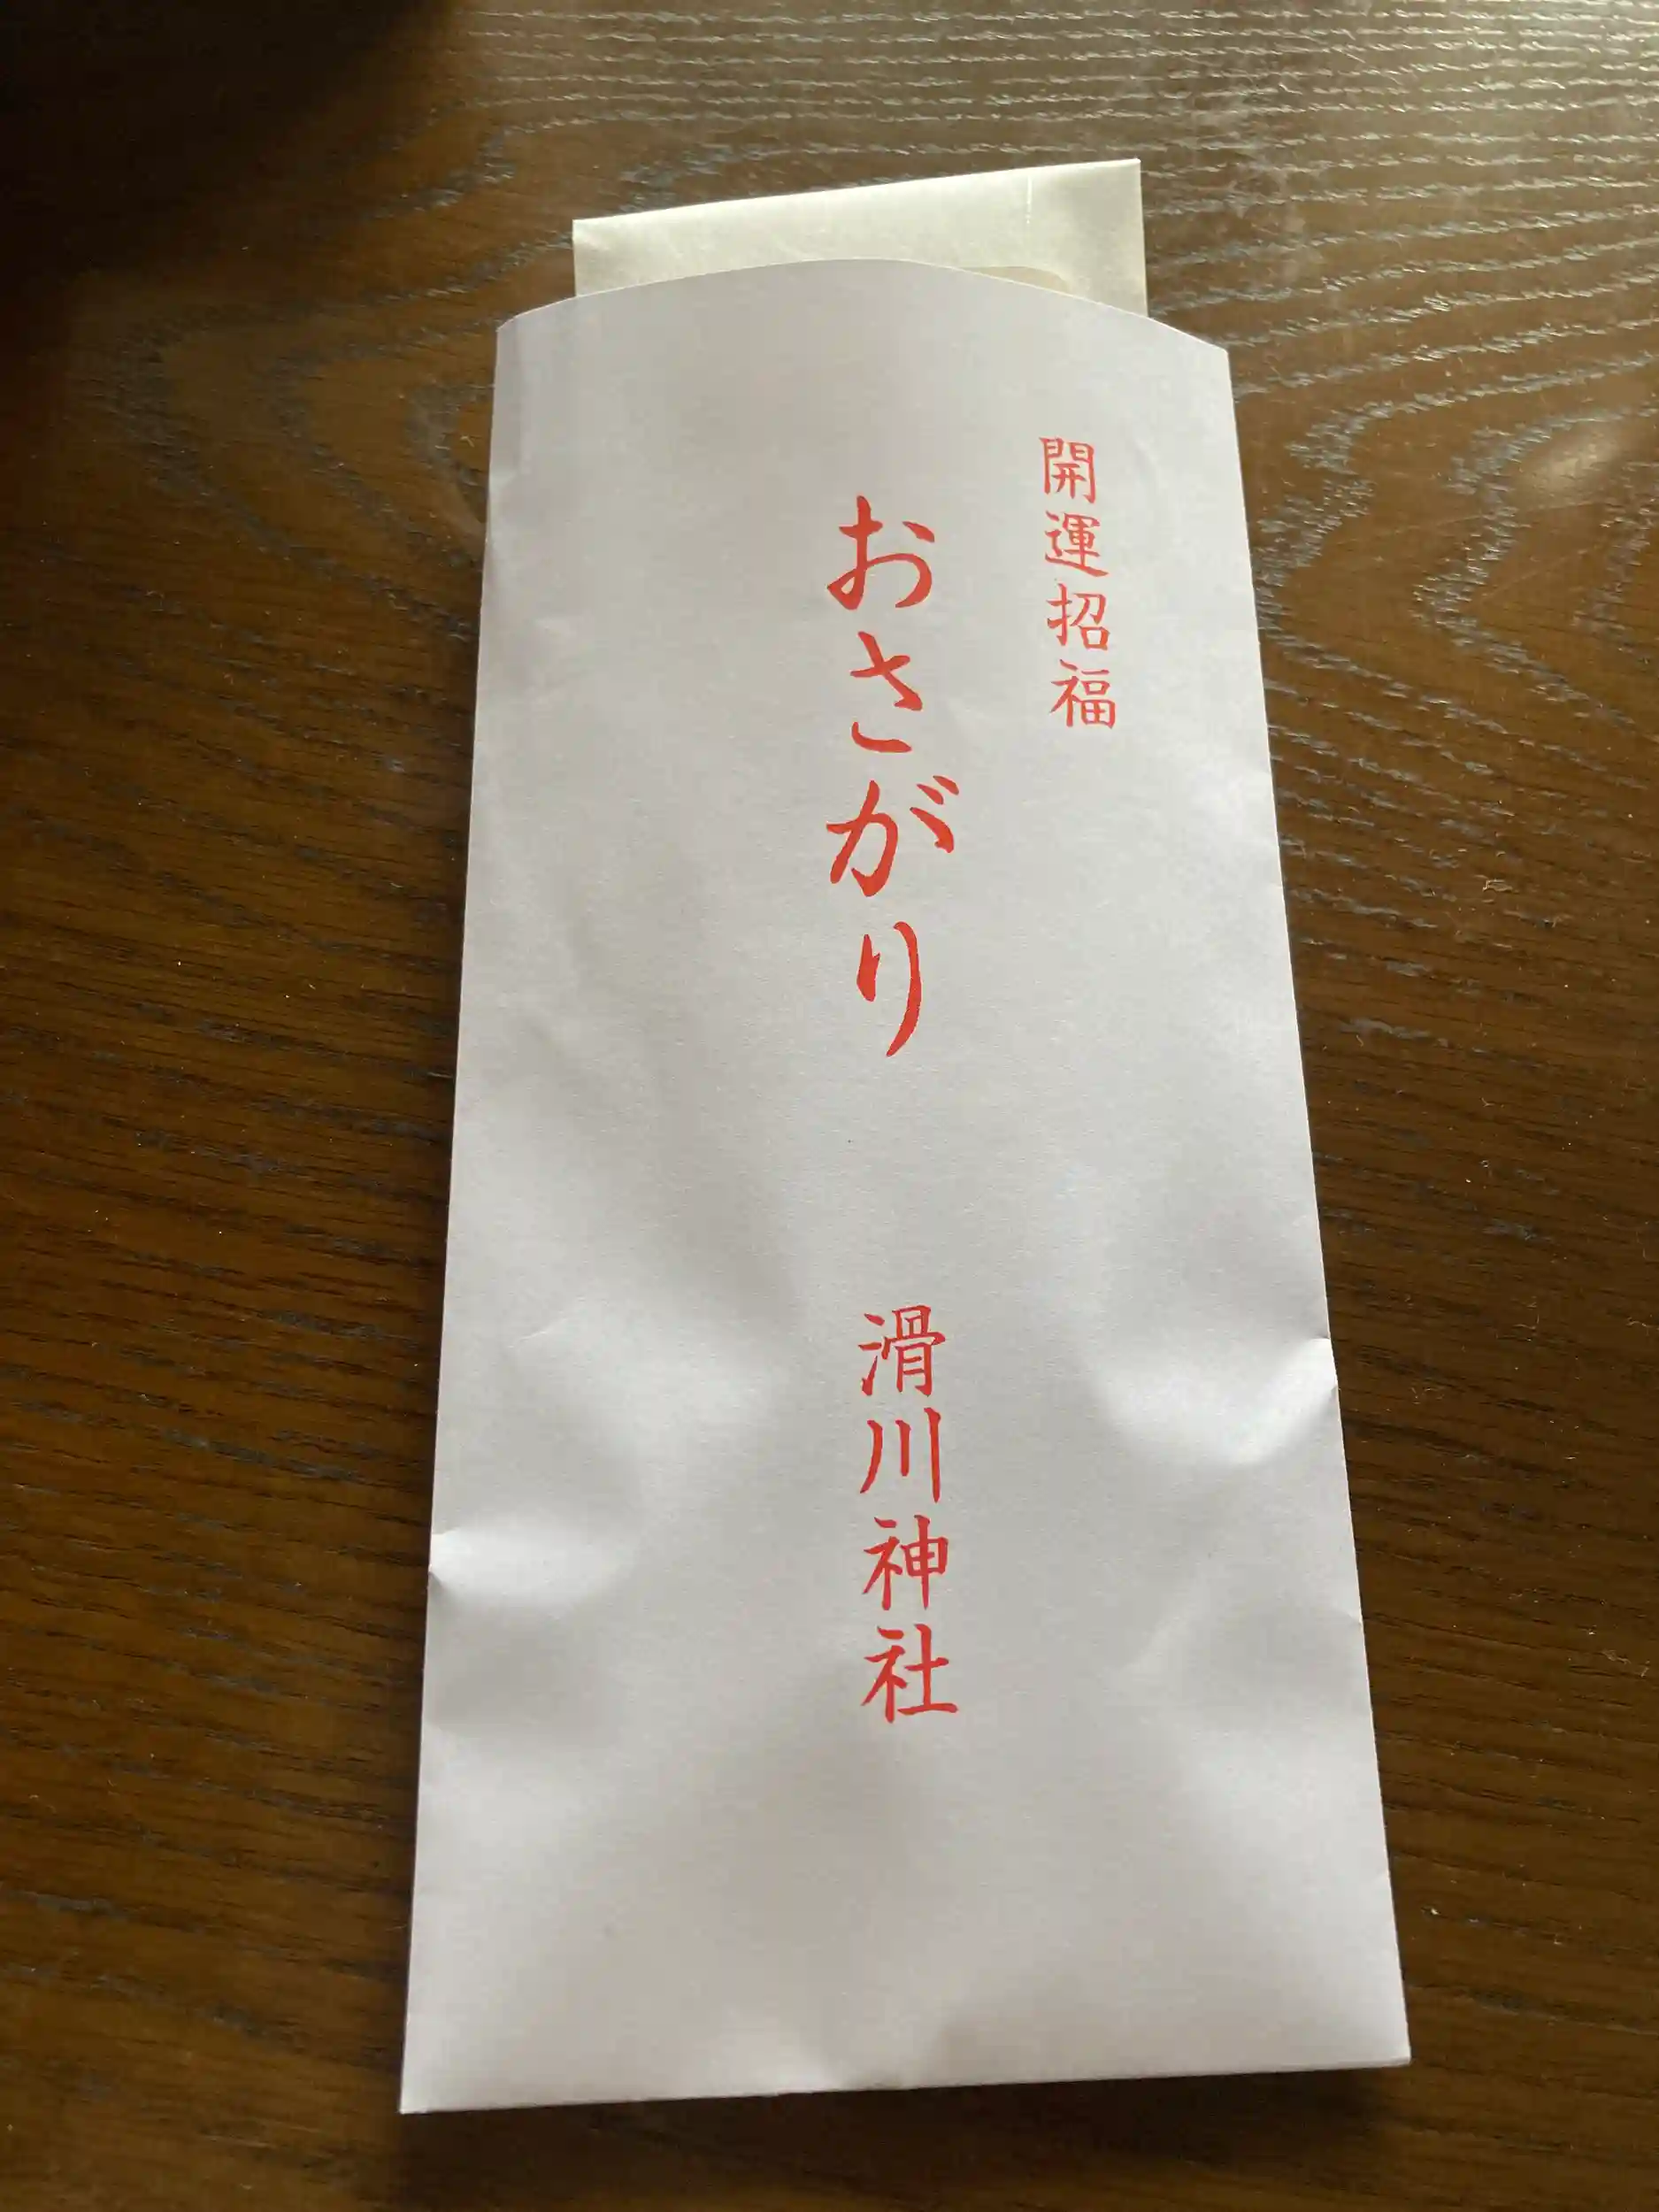 開運招福
おさがり
滑川神社